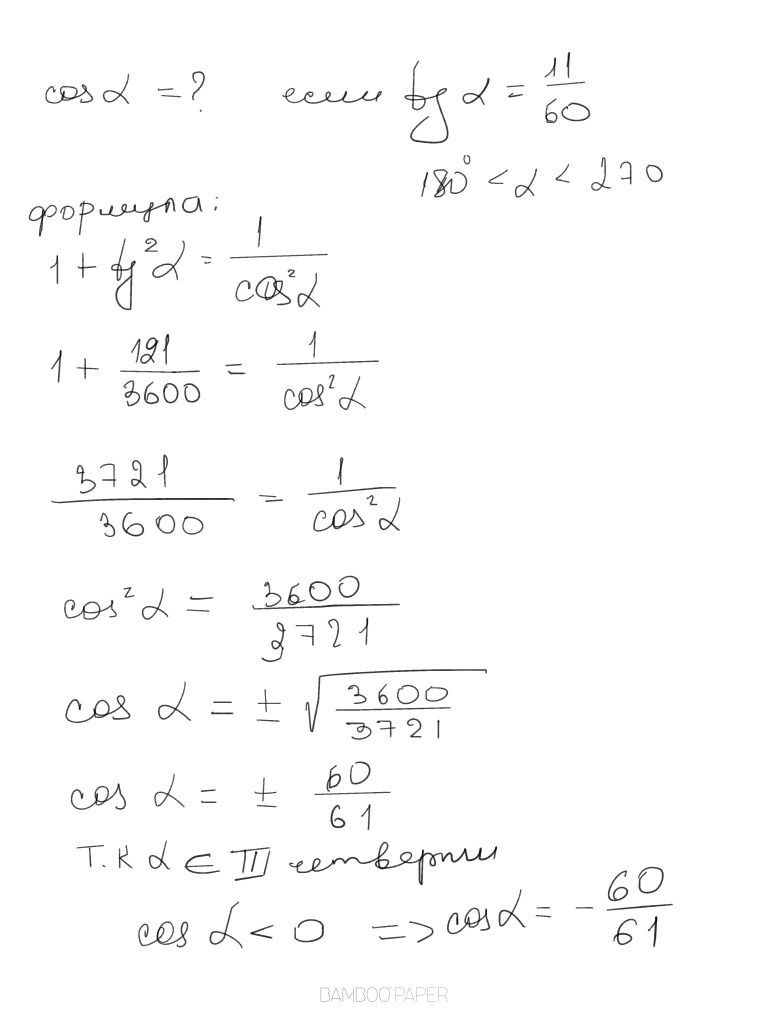 cos α = ? если tg α = 11/60
180° < α < 270
формула:
1 + tg²α = 1/cos²α
1 + 121/3600 = 1/cos²α
3721/3600 = 1/cos²α
cos²α = 3600/3721
cos α = ± √(3600/3721)
cos α = ± 60/61
Т.к α ∈ III четверти
cos α < 0 => cos α = - 60/61
BAMBOO PAPER